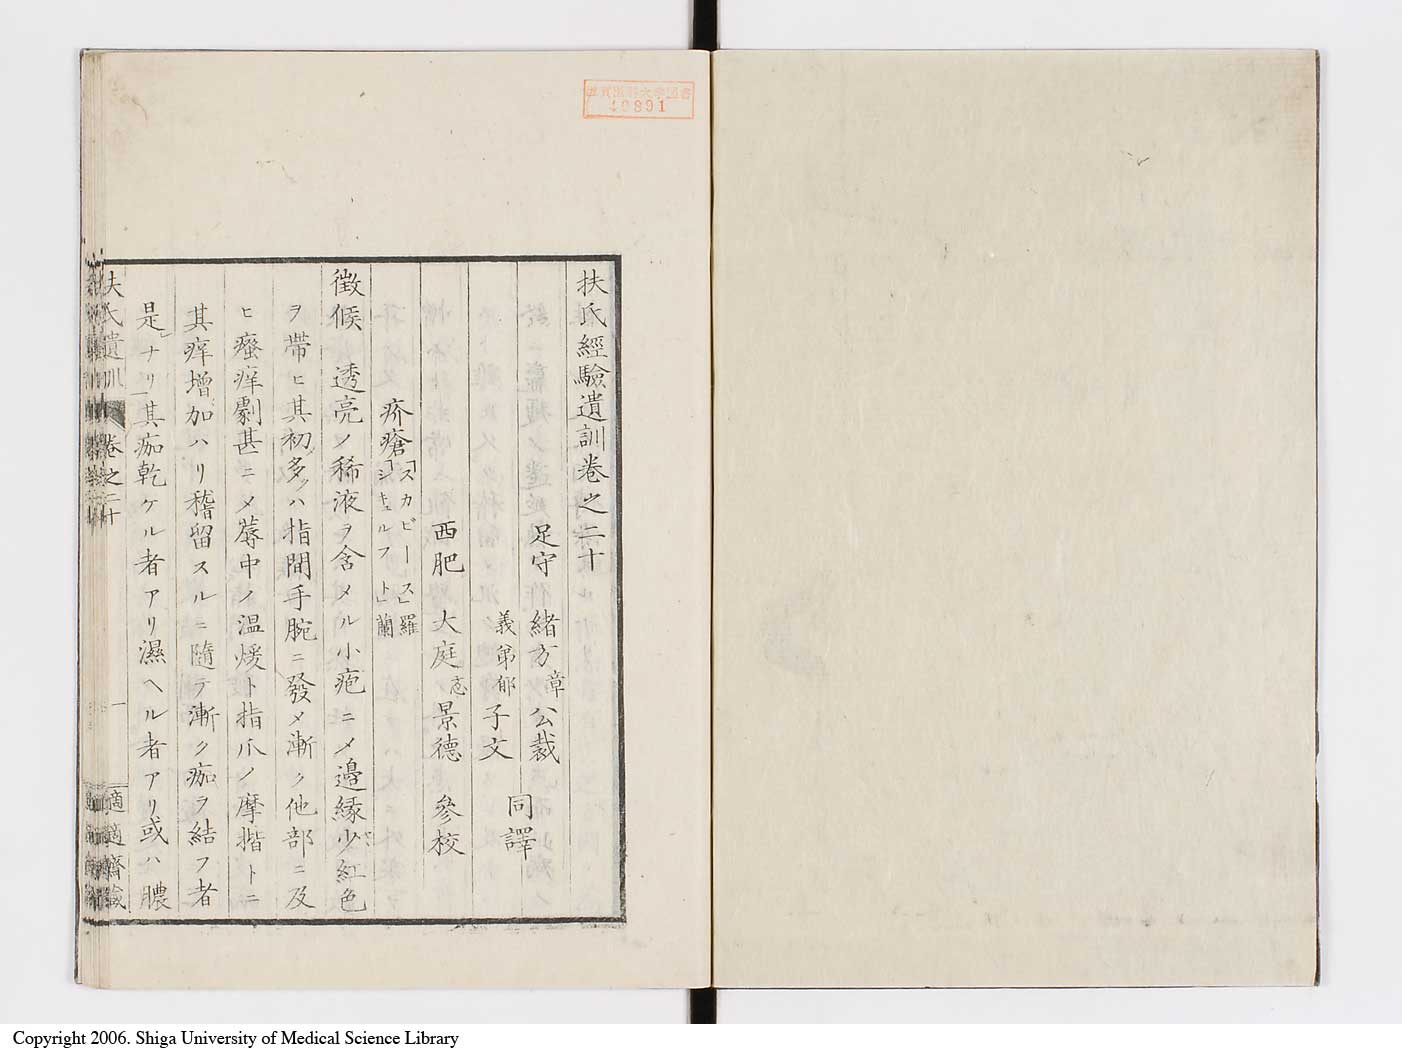 扶氏經驗遺訓卷之二十
足守 緒方章公裁
義弟郁子文
同譯
西肥 大庭忞景德 參校
疥瘡「スカビース」羅
「シキュルフト」蘭
徵候 透亮ノ稀液ヲ含メル小疱ニメ邊緣少紅色
ヲ帶ヒ其初多クハ指間手腕ニ發メ漸ク他部ニ及
ヒ瘙痒劇甚ニメ蓐中ノ溫煖ト指爪ノ摩揩トニ
其痒增加ハリ稽留スルニ隨テ漸ク痂ヲ結フ者
是ナリ其痂乾ケル者アリ濕ヘル者アリ或ハ膿
扶氏遺訓 卷之二十
一
適適齋藏
滋賀醫科大學圖書
40891
Copyright 2006. Shiga University of Medical Science Library